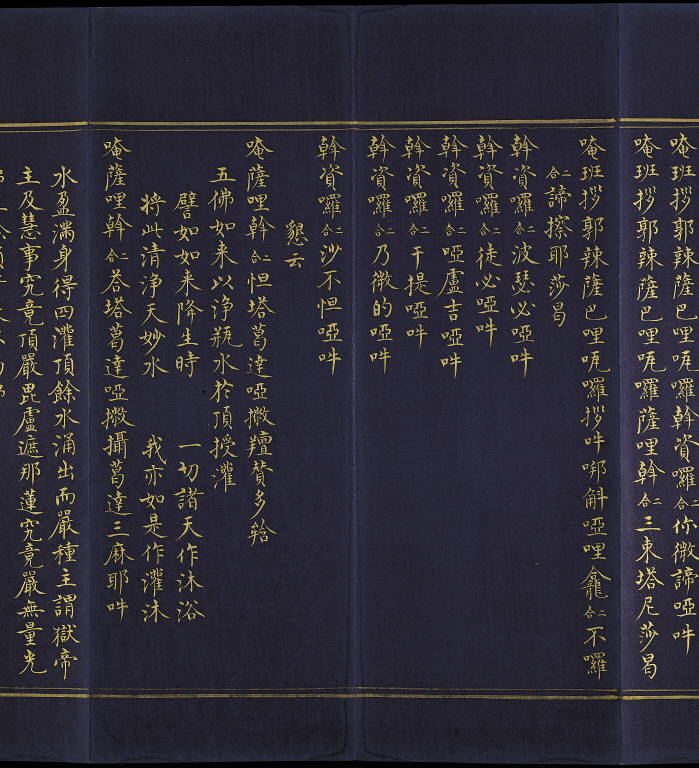 唵班拶郭辣薩巴哩咓囉斡資囉二合你微諦啞吽
唵班拶郭辣薩巴哩咓囉薩哩斡二合三東塔尼莎曷
唵班拶郭辣薩巴哩咓囉拶吽啷斛啞哩龕二合不囉
二合諦擦耶莎曷
斡資囉二合波瑟必啞吽
斡資囉二合徒必啞吽
斡資囉二合啞盧吉啞吽
斡資囉二合干提啞吽
斡資囉二合乃微的啞吽
斡資囉二合沙不怛啞吽
懇云
唵薩哩斡二合怛塔葛達啞撇羶賛多
五佛如来以净瓶水於頂授灌
譬如如来降生時 一切諸天作沐浴
將此清净天妙水 我亦如是作灌沐
唵薩哩斡二合荅塔葛達啞撇攝葛達三麻耶吽
水盈滿身得四灌頂餘水涌出而嚴種主謂獄帝
主及慧事究竟頂嚴毘盧遮那蓮究竟嚴無量光